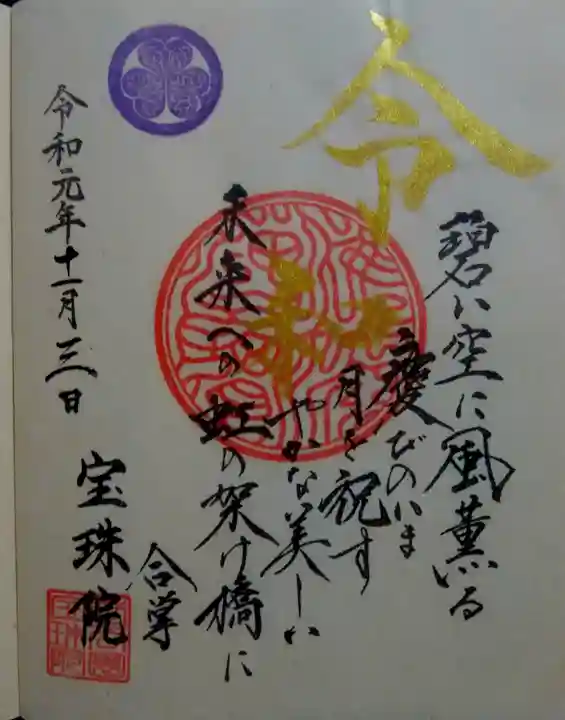 令和
碧い空に風薫る
慶びのいま
月を祝す
やかない美しい
未来への虹の架け橋に
合掌
令和元年十一月三日
宝珠院